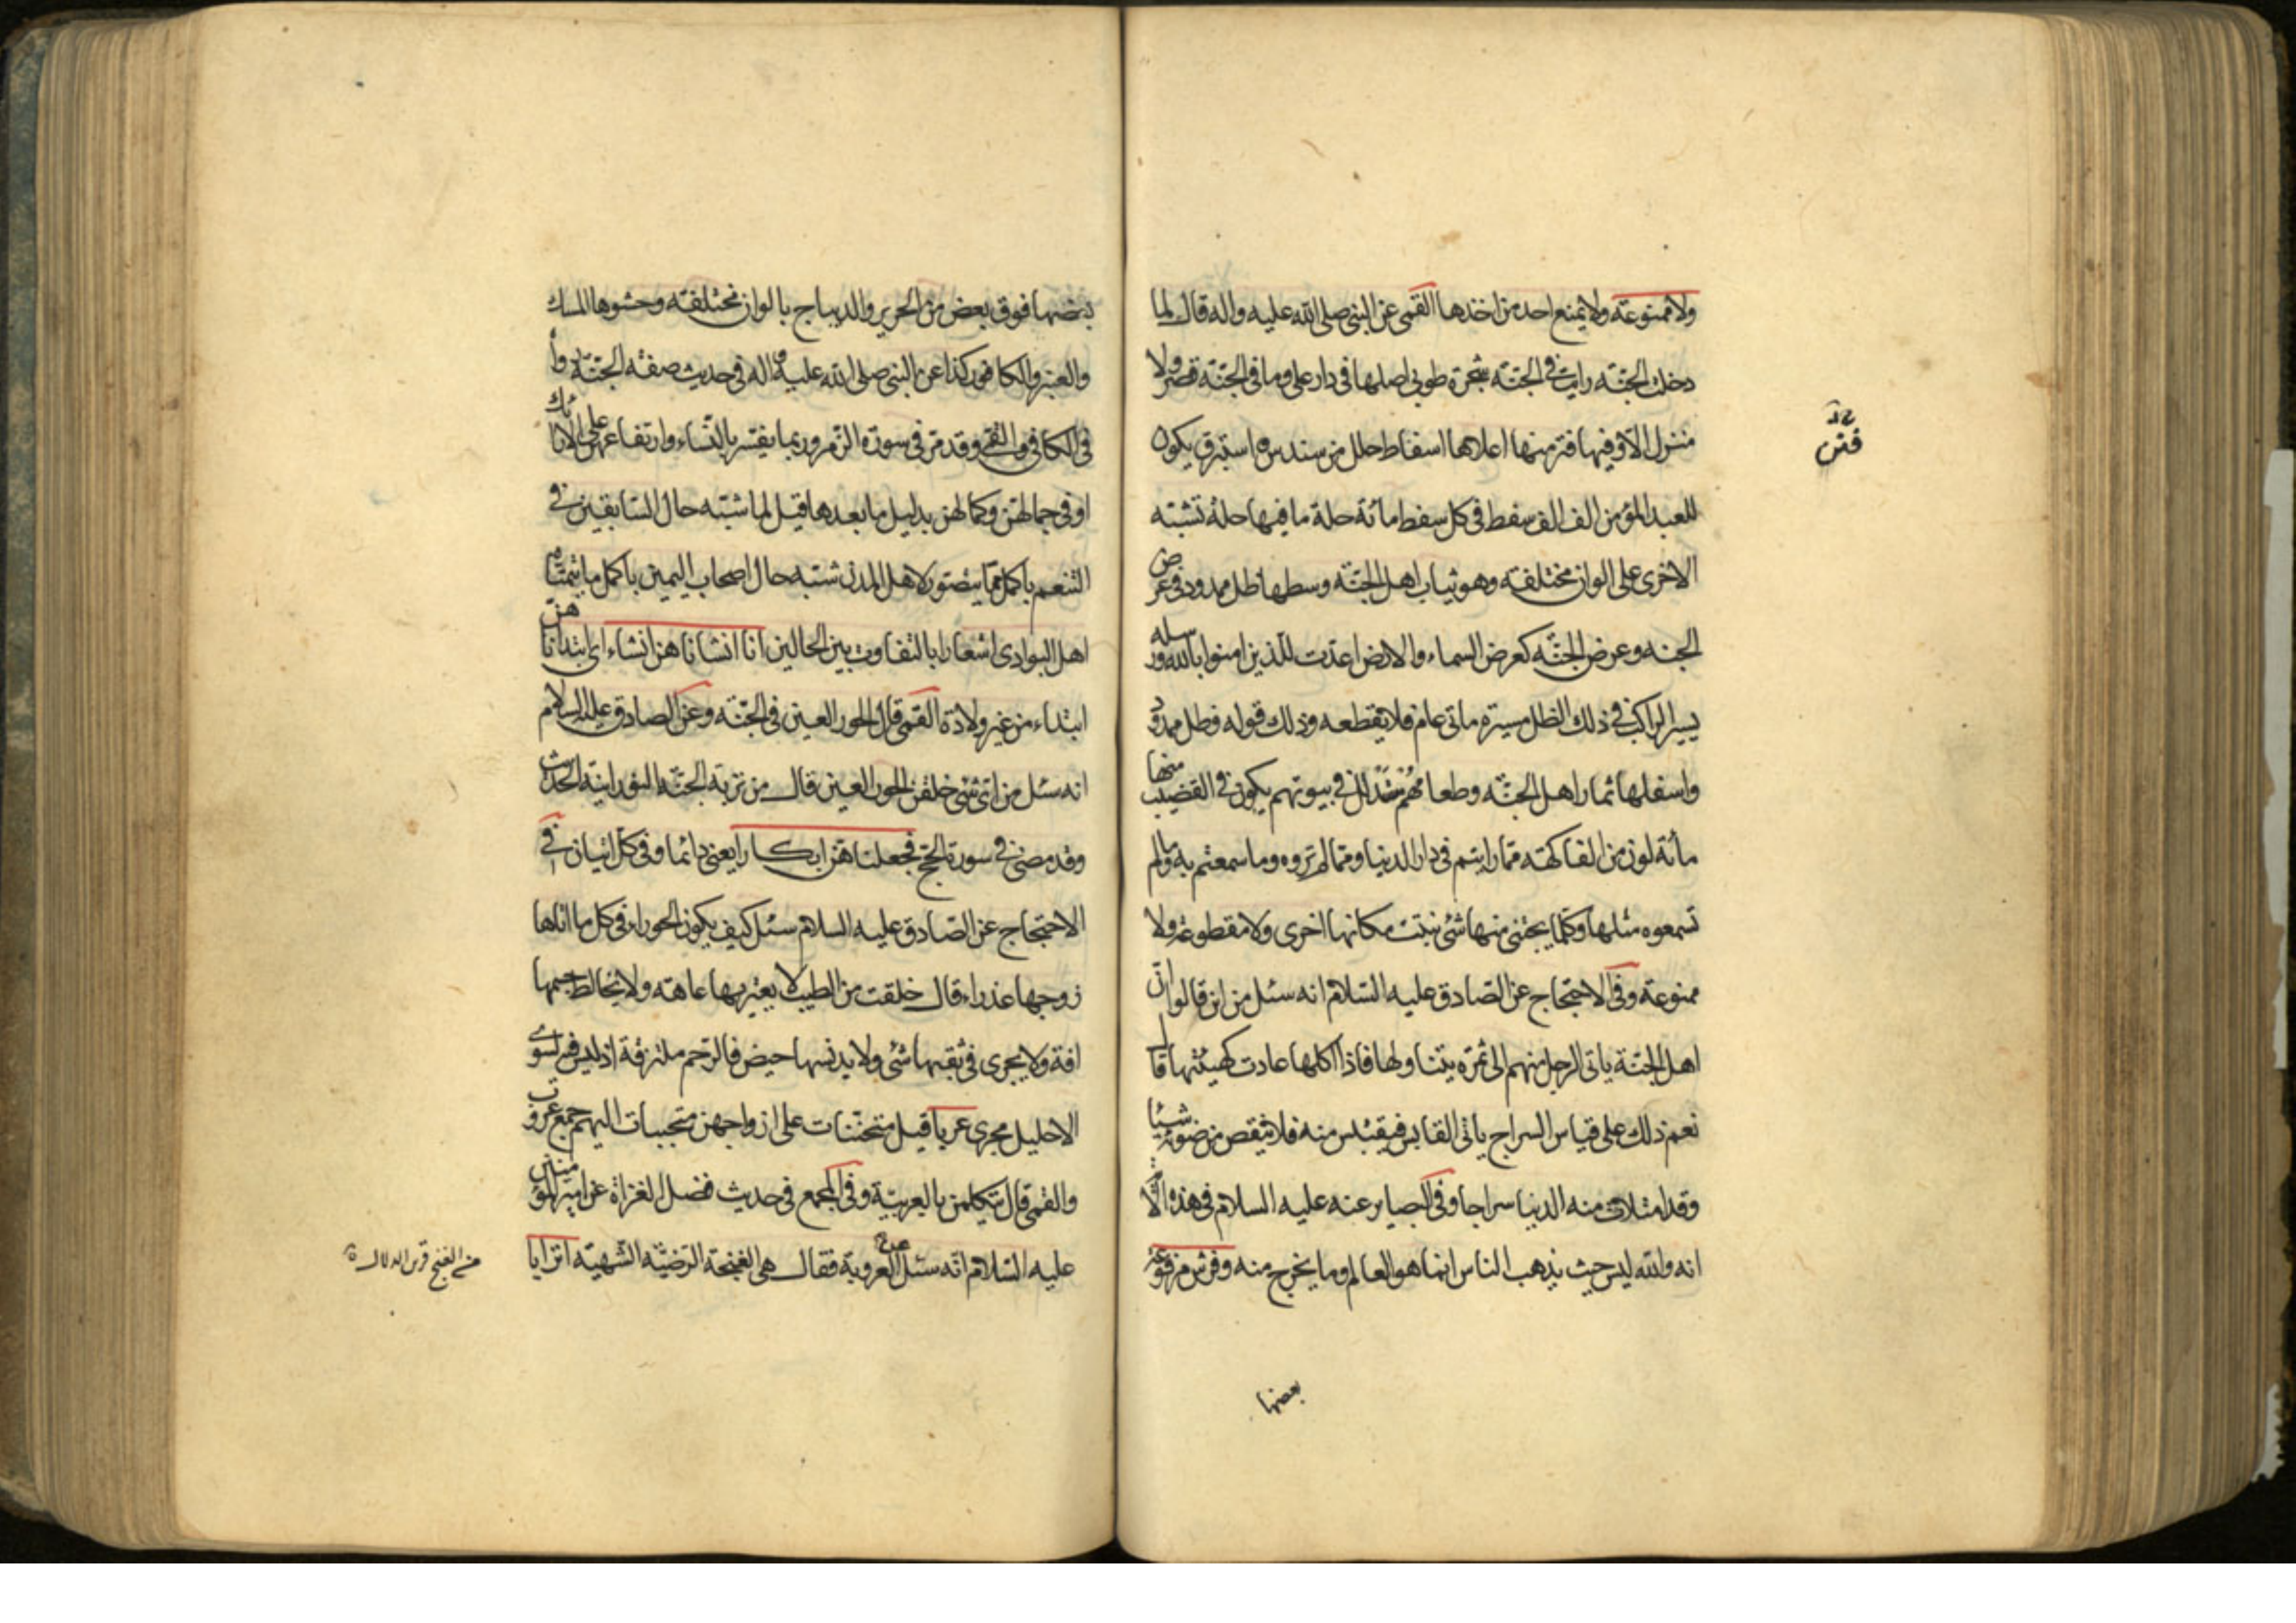 ولا ممنوعة ولا يمنع احد من اخذها القمى عن النبى صلى الله عليه واله قال لما
دخلت الجنّة رايت فى الجنّة شجرة طوبى اصلها فى دار على وما فى الجنّة قصر ولا
منزل الّا وفيها فتر منها اعلاها اسفاط حلل من سندس واستبرق يكون
فتن
للعبد المؤمن الف الف سفط فى كل سفط مائة حلة ما فيها حلة تشبه
الاخرى على الوان مختلفة وهو ثياب اهل الجنّة وسطها ظل ممدود فى عرض
الجنه وعرض الجنّة كعرض السماء والارض اعدّت للّذين امنوا بالله ورسله
يسير الراكب فى ذلك الظل مسيرة مأتى عام فلا يقطعه وذلك قوله وظل ممدود
واسفلها ثمار اهل الجنّة وطعامهم متذلل فى بيوتهم يكون فى القضيب منها
مائة لون من الفاكهة ممّا رايتم فى دار الدنيا وممّا لم تروه وما سمعتم به وما لم
تسمعوه مثلها وكلّما يجتنى منها شئ نبتت مكانها اخرى ولا مقطوعة ولا
ممنوعة وفى الاحتجاج عن الصّادق عليه السّلام انه سئل من اين قالوا انّ
اهل الجنّة ياتى الرجل منهم الى ثمرة يتناولها فاذا اكلها عادت كهيئتها قال
نعم ذلك على قياس السراج ياتى القابس فيقتبس منه فلا ينقص من ضوئه شيئا
وقد امتلات منه الدنيا سراجا وفى البصاير عنه عليه السلام فى هذه الاية
انه والله ليس حيث يذهب الناس انما هو العالم وما يخرج منه وفرش مرفوعة
بعضها
بعضها فوق بعض من الحرير والديباج بالوان مختلفة وحشوها المسك
والعنبر والكافور كذا عن النبى صلى الله عليه واله فى حديث صفة الجنّة رواه
فى الكافى والقمى وقد مرّ فى سورة الزمر وربما يفسّر بالنّساء وارتفاعهنّ على الارائك
او فى جمالهنّ وكمالهن بدليل ما بعدها قيل لما شبّه حال السّابقين فى
التنعم باكمل ما يتصور لاهل المدن شبه حال اصحاب اليمين باكمل ما يتمنّاه
اهل البوادى اشعارا بالتفاوت بين الحالين انا انشاناهن انشاء اى ابتداناهنّ
ابتداء من غير ولادة القمى قال الحور العين فى الجنّة وعن الصادق عليه السلام
انه سئل من اىّ شئ خلقن الحور العين قال من تربة الجنّة النورانيّة الحديث
وقد مضى فى سورة الحج فجعلناهنّ ابكارا يعنى دائما وفى كلّ اتيان فى
الاحتجاج عن الصّادق عليه السلام سئل كيف يكون الحوراء فى كل ما اتاها
زوجها عذراء قال خلقت من الطيب لا يعتريها عاهة ولا يخالط جسمها
افة ولا يجرى فى ثقبها شئ ولا يدنسها حيض فالرّحم ملتزقة اذ ليس فيه لسوى
الاحليل مجرى عربا قيل متحنّنات على ازواجهن متحببات اليهم جمع عروب
والقمى قال يتكلمن بالعربيّة وفى المجمع فى حديث فضل الغزاة عن امير المؤمنين
عليه السّلام انّه سئل عن العروبة فقال هى الغنجة الرّضيّة الشّهيّة اترابا